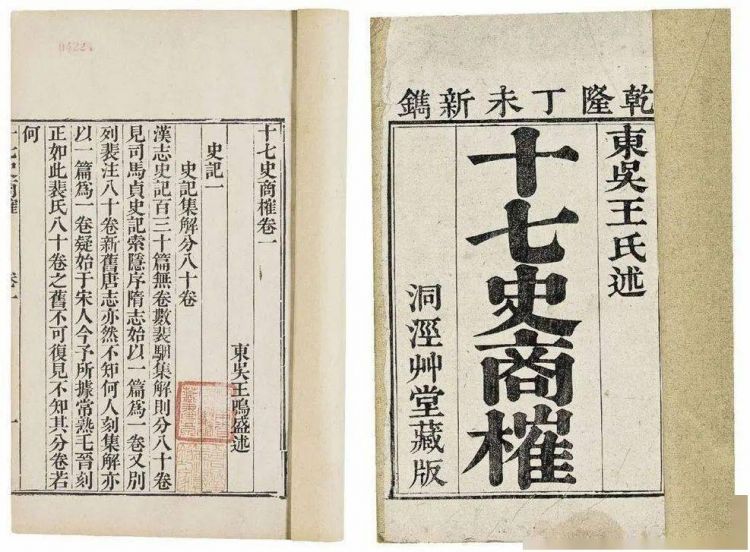 乾隆丁未新鐫
東吳王氏述
十七史商榷
洞涇艸堂藏版
十七史商榷卷一
東吳王鳴盛述
史記一
史記集解分八十卷
漢志史記百三十篇無卷數裴駰集解則分八十卷
見司馬貞史記索隱序隋志始以一篇爲一卷又別
列裴注八十卷新舊唐志亦然不知何人刻集解亦
以一篇爲一卷疑始于宋人今予所據常熟毛晉刻
正如此裴氏八十卷之舊不可復見不知其分卷若
何